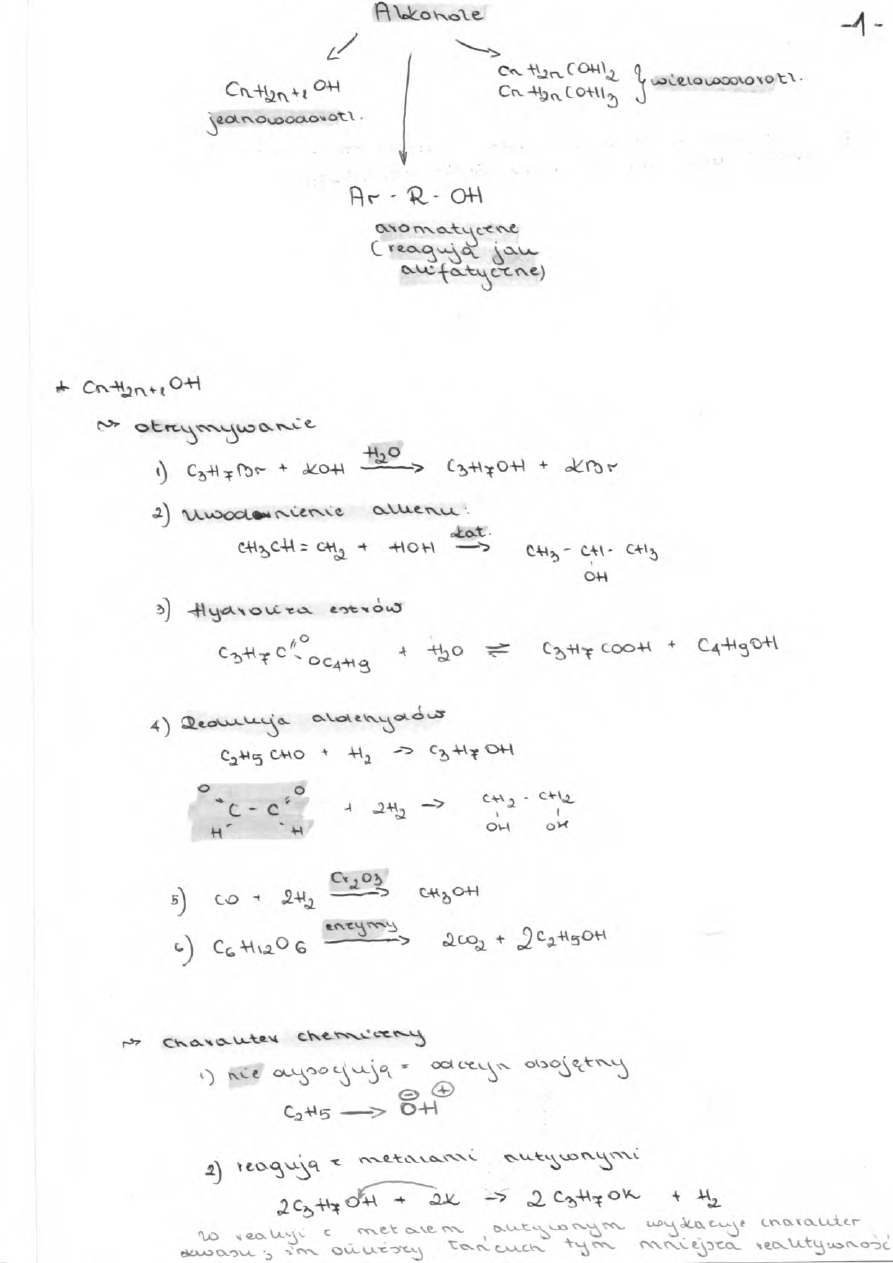 Alkohole
-1-
CnH2n+1OH
jednowodorotl.
CnH2n(OH)2
CnH2n(OH)3 } wielowodorotl.
Ar - R - OH
aromatyczne
(reagują jak
alifatyczne)
* CnH2n+1OH
~ otrzymywanie
1) C3H7Br + KOH H2O → C3H7OH + KBr
2) Uwodnienie alkenu:
CH3CH=CH2 + HOH kat. → CH3 - CH - CH3
OH
3) Hydroliza estrów
C3H7C=O OC4H9 + H2O ⇌ C3H7COOH + C4H9OH
4) Redukcja aldehydów
C2H5CHO + H2 → C3H7OH
O O
C - C + 2H2 → CH2 - CH2
H H OH OH
5) CO + 2H2 Cr2O3 → CH3OH
6) C6H12O6 enzymy → 2CO2 + 2C2H5OH
~ charakter chemiczny
1) nie dysocjują = odczyn obojętny
C2H5 → ⊖ OH ⊕
2) reagują z metalami aktywnymi
2C3H7OH + 2K → 2C3H7OK + H2
w reakcji z metalem aktywnym wykazuje charakter
kwasu; im dłuższy łańcuch tym mniejsza reaktywność